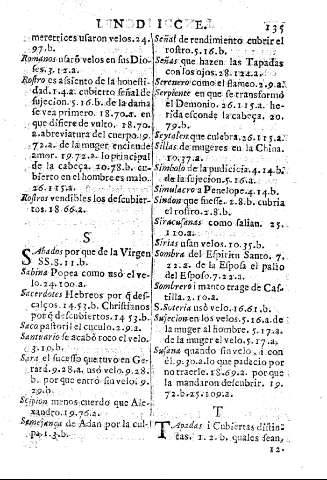 INDICE. 135
meretrices usaron velos. 24.
97. b.
Romanos usarō velos en sus Dio-
ses. 3. 12. a.
Rostro es assiento de la honesti-
dad. 1. 4. a. cubierto señal de
sujecion. 5. 16. b. de la dama
se vea primero. 18. 70. a. en
que difiere de vulto. 18. 70.
a. abreviatura del cuerpo. 19.
72. a. de la muger enciende
amor. 19. 72. a. lo principal
de la cabeça. 20. 78. b. cu-
bierto en el hombre es malo.
26. 115. a.
Rostros vendibles los descubier-
tos. 18. 66. a.
S
SAbados por que de la Virgen
SS. 8. 11. b.
Sabina Popea como usó el ve-
lo. 24. 100. a.
Sacerdotes Hebreos por q̄ des-
calços. 14. 53. b. Christianos
por q̄ descubiertos. 14. 53. b.
Saco pastoril el cuculo. 2. 9. a.
Santuario se acabó roto el velo.
3. 10. b.
Sara el sucesso que tuvo en Ge-
rará. 9. 28. a. usó velo. 9. 28.
b. por que entró sin velo. 9.
29. b.
Scipion menos cuerdo que Ale-
xandro. 19. 76. a.
Semejança de Adan por la cul-
pa. 1. 3. b.
Señal de rendimiento cubrir el
rostro. 5. 16. b.
Señas que hazen las Tapadas
con los ojos. 28. 124. a.
Serenero como el flameo. 2. 9. a.
Serpiente en que se transformó
el Demonio. 26. 115. a. he-
rida esconde la cabeça. 20.
79. b.
Seytalon que culebra. 26. 115. a.
Sillas de mugeres en la China.
10. 37. a.
Simbolo de la pudicicia. 4. 14. b.
de la sujecion. 5. 16. a.
Simulacro a Penelope. 4. 14. b.
Sindon que fuesse. 2. 8. b. cubria
el rostro. 2. 8. b.
Siracusanas como salian. 25.
110. a.
Sirias usan velos. 10. 35. b.
Sombra del Espiritu Santo. 7.
22. a. de la Esposa el palio
del Esposo. 7. 22. a.
Sombrero i manto trage de Cas-
tilla. 2. 10. a.
S. Soteria usó velo. 16. 61. b.
Sujecion en los velos. 5. 16. a. de
la muger al hombre. 5. 17. a.
de la muger el velo. 5. 17. a,
Susana quando sin velo, i con
él. 9. 30. a. lo que padecio por
no traerle. 18. 69. a. por que
la mandaron descubrir. 19.
72. b. 25. 109. a.
T
TApadas i Cubiertas distin-
tas. 1. 2. b. quales sean,
12.